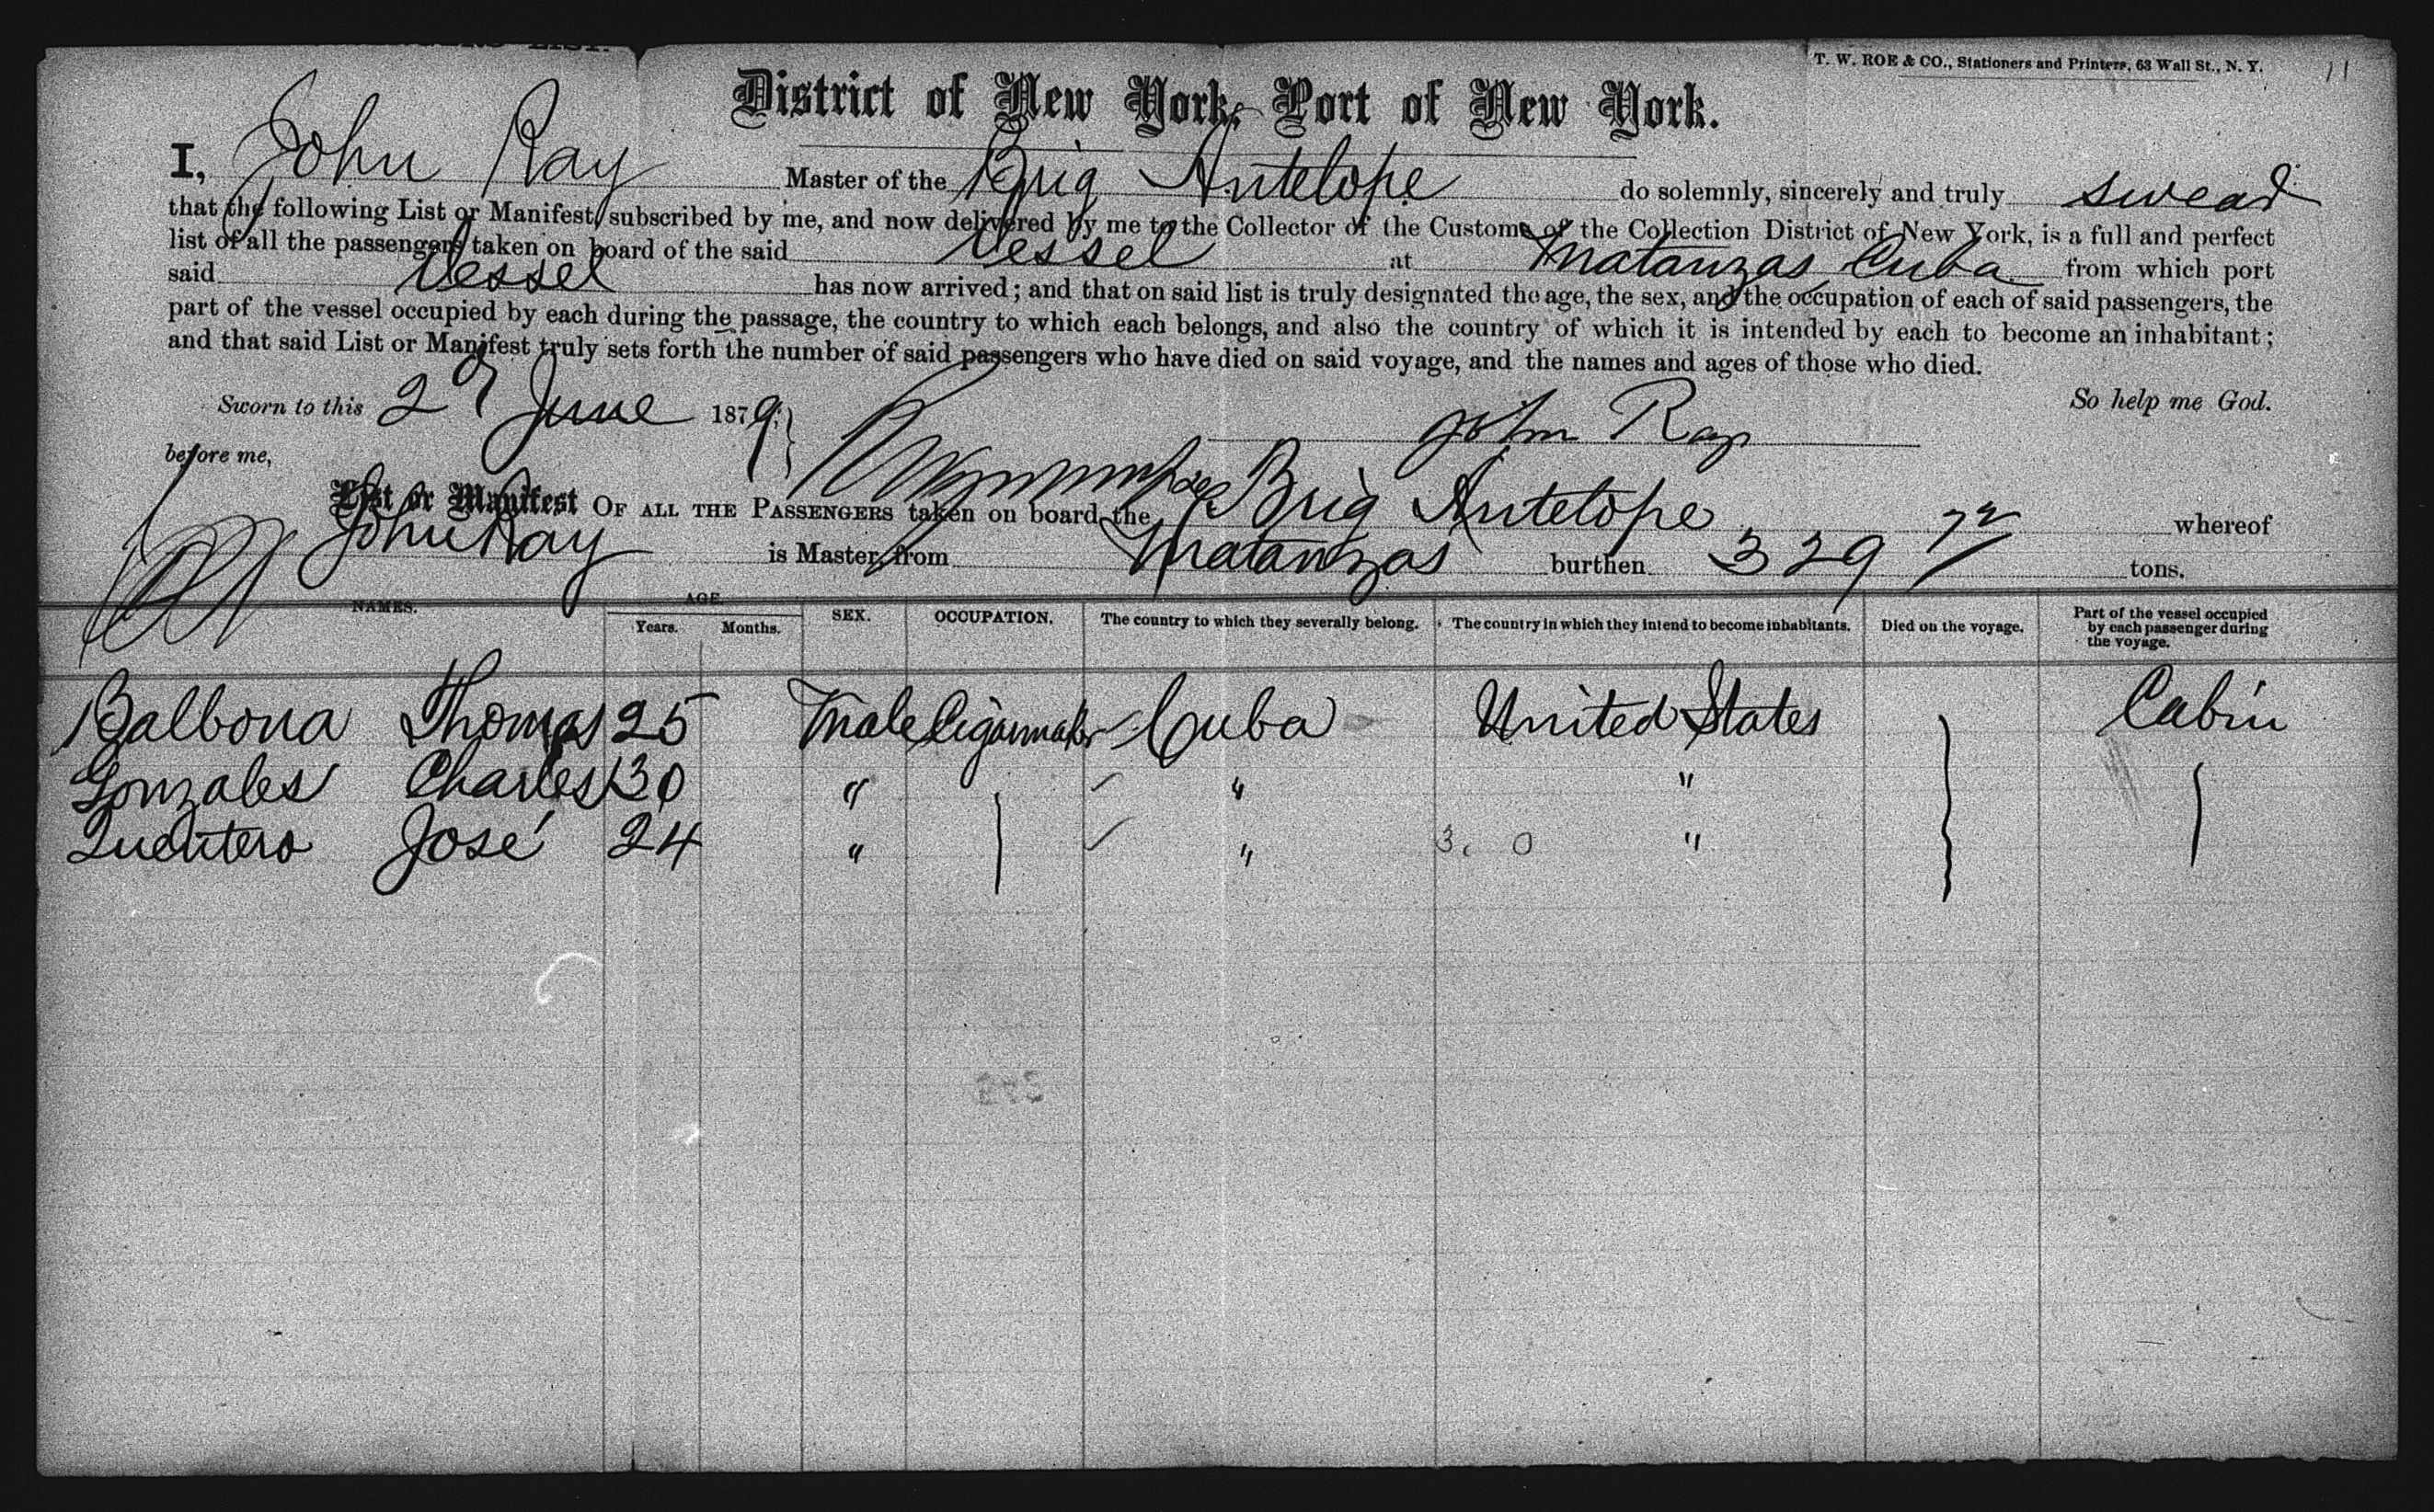 T. W. ROE & CO., Stationers and Printers, 63 Wall St., N. Y.
11
District of New York, Port of New York.
I, John Ray Master of the Brig Antelope do solemnly, sincerely and truly swear
that the following List or Manifest, subscribed by me, and now delivered by me to the Collector of the Customs of the Collection District of New York, is a full and perfect
list of all the passengers taken on board of the said Vessel at Matanzas Cuba from which port
said Vessel has now arrived; and that on said list is truly designated the age, the sex, and the occupation of each of said passengers, the
part of the vessel occupied by each during the passage, the country to which each belongs, and also the country of which it is intended by each to become an inhabitant;
and that said List or Manifest truly sets forth the number of said passengers who have died on said voyage, and the names and ages of those who died.
Sworn to this 2d June 1879, So help me God.
before me, John Ray
List or Manifest OF ALL THE PASSENGERS taken on board the Brig Antelope whereof
John Ray is Master, from Matanzas burthen 329 72 tons.
NAMES. AGE. Years. Months. SEX. OCCUPATION. The country to which they severally belong. The country in which they intend to become inhabitants. Died on the voyage. Part of the vessel occupied by each passenger during the voyage.
Balbona Thomas 25 Male Cigarmaker Cuba United States Cabin
Gonzales Charles 30 " " "
Quentero José 24 " " 3, 0 "